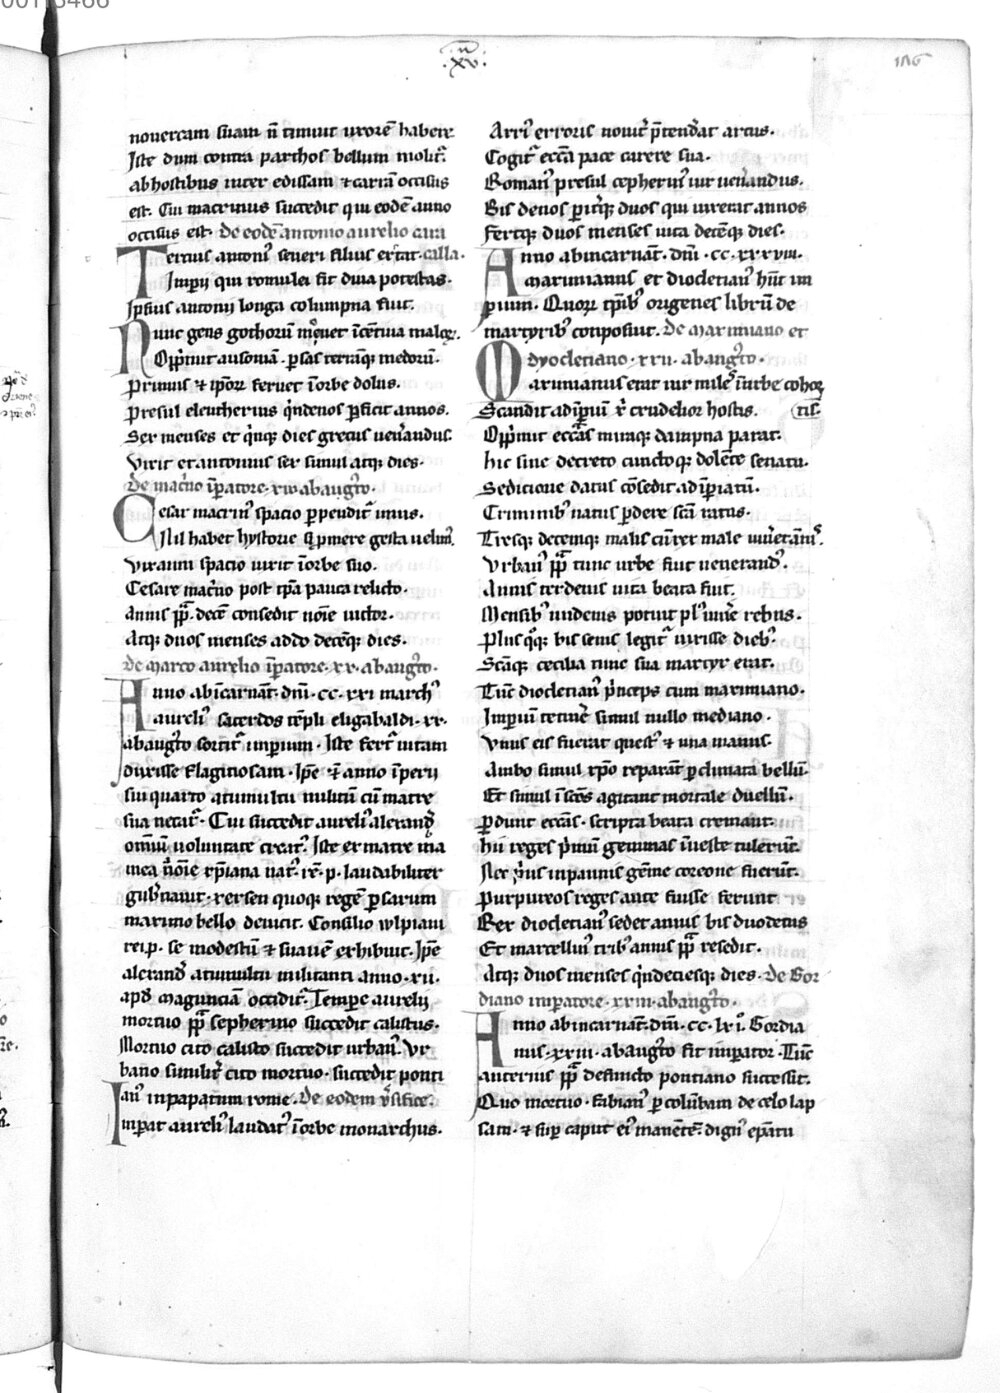 ·xv·
nouercam suam n̄ timuit uxorē habere
Iste dum contra parthos bellum molit᷑
ab hostibus inter edissam ⁊ carrā occisus
est. Cui macrinus succedit qui eodē anno
occisus est. De eodē antonio aurelio cara
Tertius anton᷒ seueri filius er̄tat. calla.
Imp̄ii qui romulei fit diua potestas.
Ipsius antonij longa columpna fuit.
Nunc gens gothorū mouet īcētiua maloꝝ.
Opp̄mit ausoniā. p̱sas terrāqꝫ medorū.
Primus ⁊ ip̄oꝝ feruet īorbe dolus.
Presul eleutherius q̍ndenos p̱ficit annos.
Sex menses et q̍nqꝫ dies grecus uen̄andus.
Vixit et antonius sex simul atqꝫ dies.
De mac̍no īp̱atore. xix ab aug᷒to.
Cesar macrin᷒ spacio p̱pendit᷑ imus.
Nil habet hystorie q̍ p̱mere gesta uelim᷒.
Vix anni spacio uixit īorbe suo.
Cesare mac̍no post tp̄a pauca relicto.
Annis pp̄. decē consedit noīe uictor.
Atqꝫ duos menses addo decēqꝫ dies.
De marco aurelio īp̱atore. xx. ab aug᷒to.
Anno ab īcarnat̄. dn̄i. cc. xxi march᷒
aureli᷒ sacerdos tēpli eligabaldi. xx.
ab aug᷒to sortit᷑ imperium. Iste fert᷑ uitam
duxisse flagitiosam. Ip̄e ⁊ anno īperij
sui quarto a tumultu militū cū matre
sua necat᷑. Cui succedit aureli᷒ alexand̄
omniū uoluntate creat᷒. Iste ex matre ma
mea noīe xp̄iana nat᷒. rē. p. laudabiliter
gub̄nauit. xersen quoqꝫ regē p̱sarum
maximo bello deuicit. Consilio wlpiani
rei.p. se modestū ⁊ suauē exhibuit. Ip̄e
alexand̄ a tumultu militanti anno. xii.
apd̄ magunciā occidit᷑. Tempe aurelij
mortuo pp̄ sepherino succedit calistus.
Mortuo cito calisto succedit urban᷒. Vr
bano similit̄ cito mortuo. succedit ponti
an᷒ in papatum rome. De eodem v̄sifice.
Imp̱at aureli᷒ laudat᷒ īorbe monarchus.
Arri᷒ erroris nouit᷑ p̄tend̄at artus.
Cogit᷑ ecc̄a pace carere sua.
Roman᷒ presul cepherin᷒ uir uen̄andus.
Bis denos p̱it̄qꝫ duos qui uixerat annos
Fertqꝫ duos menses iuta decēqꝫ dies.
Anno ab incarnat̄. dn̄i. cc. xxxviii.
maximianus et dioclecian᷒ hn̄t im
p̱ium. Quoꝝ tp̄ib᷒ origenes librū de
martyrib᷒ conposuit. De maximiano et
dyocleciano. xxii. ab aug᷒to.
Maximianus erat uir mile᷒ īurbe cohoꝝ
Scandit ad īp̱iū xp̄ crudelior hostis. tis.
Opp̍mit ecc̄as minaqꝫ dampna parat.
hic sine decreto cunctoqꝫ dolēte senatu.
Sedicione datus cōsedit ad īp̱iatū.
Criminib᷒ natus p̱dere sc̄ā ratus.
Tresqꝫ decemqꝫ malis cū rex male uiu̍et ānis.
Vrban᷒ pp̄ tunc urbe fuit uenerand᷒.
Annis ter denis uita beata fuit.
Mensib᷒ undenis potuit pl᷒ uiu̍e rebus.
Plus q̍qꝫ bis senis legit᷑ uixisse dieb᷒.
Sc̄aqꝫ cecilia tunc sua martyr erat.
Tūc dioclecian᷒ p̍nceps cum maximiano.
Imperiū tenuēr simul nullo mediano.
Vnus eis fuerat quest᷒ ⁊ una manus.
Ambo simul xp̄o reparāt p̱climata bellū.
Et simul ī scōs agitant mortale duellū.
p̱dunt ecc̄as. scripta beata cremant.
hii reges p̍mū gemmas īueste tulerūt.
Nec p̍us in pannis gēme coreone fuerūt.
Purpureos reges ante fuisse ferunt
Rex dioclecian᷒ sedet annis bis duodenis
Et marcellin᷒ trib᷒ annis pp̄ resedit.
Atqꝫ duos menses q̍ndeciesqꝫ dies. De Gor
diano imperatore. xxiii. ab aug᷒to.
Anno ab incarnat̄. dn̄i. cc. lxi᷒. Gordia
nus. xxiii. ab aug᷒to fit imperator. Tūc
anterius pp̄ defuncto pontiano successit.
Quo mortuo. fabian᷒ p̱ colūbam de celo lap
sam. ⁊ sup̱ caput ei᷒ manētē. dign᷒ ep̄atu